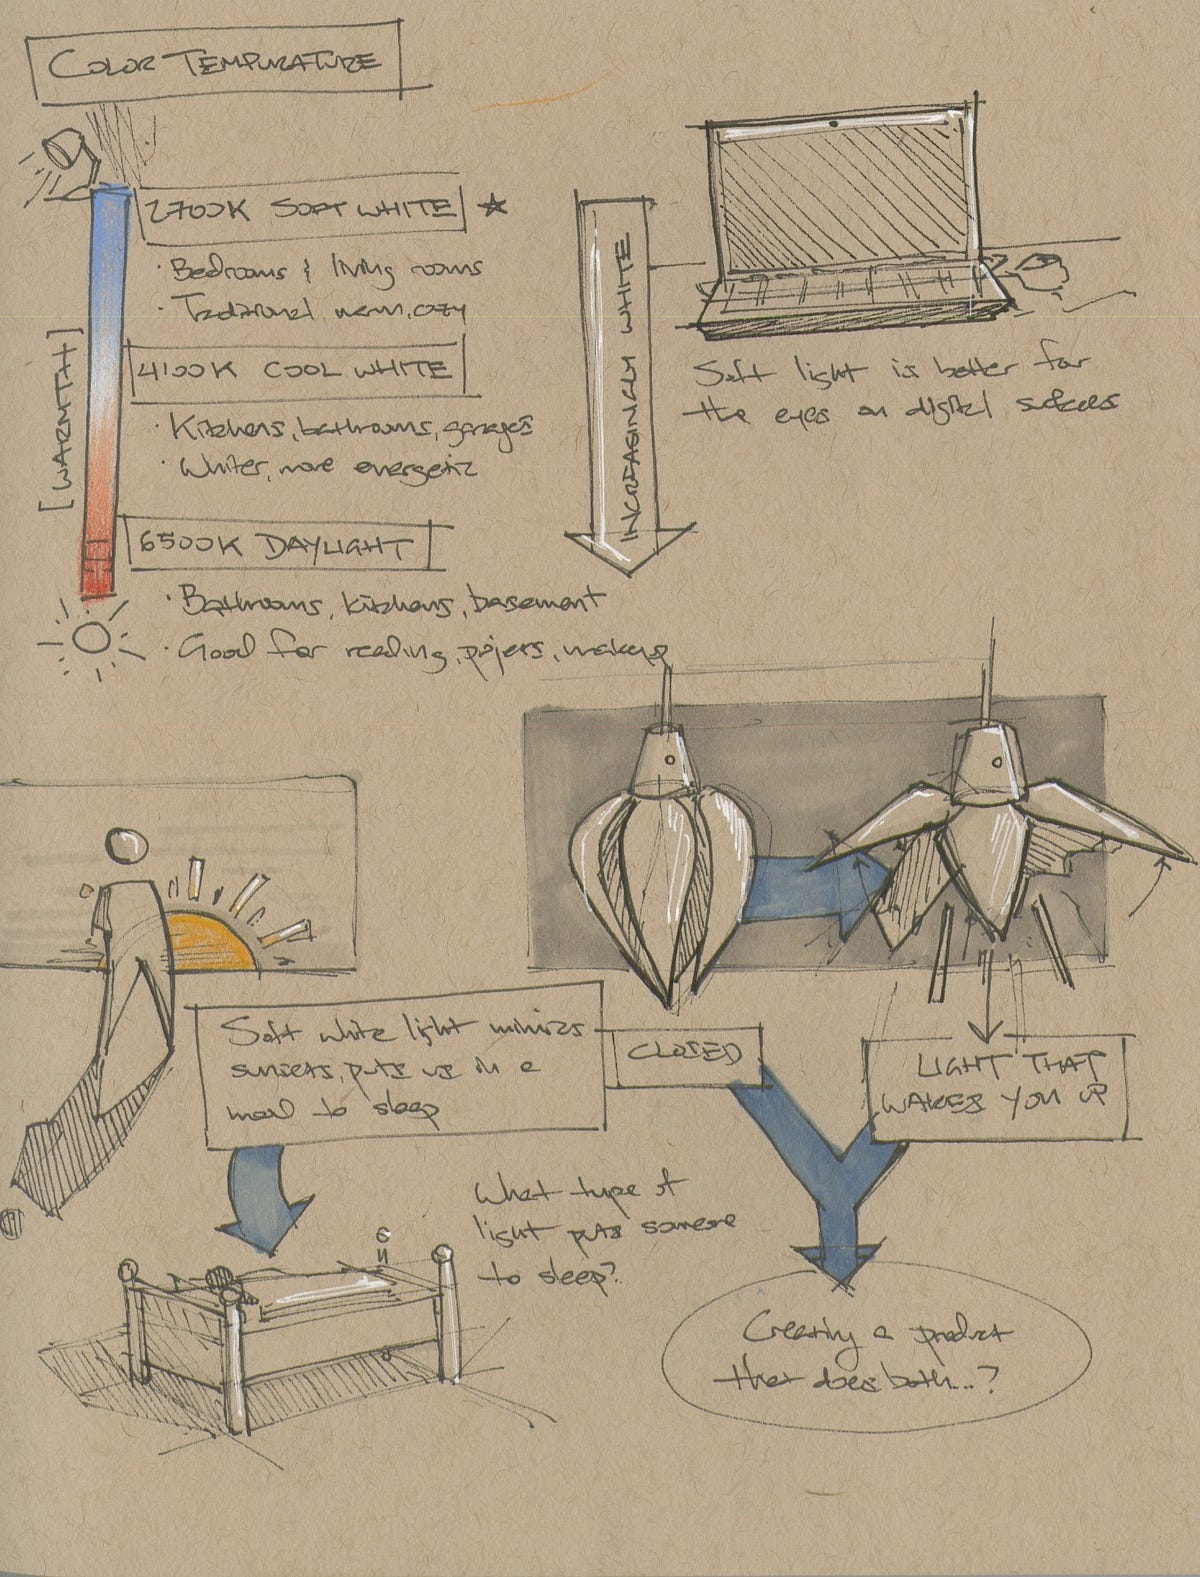 COLOR TEMPURATURE
2700K SOFT WHITE
· Bedrooms & living rooms
· Traditional, warm, cozy
[WARMTH]
4100K COOL WHITE
· Kitchens, bathrooms, garages
· Whiter, more energetic
6500K DAYLIGHT
· Bathrooms, kitchens, basement
· Good for reading, projects, makeup
INCREASINGLY WHITE
Soft light is better for
the eyes on digital surfaces
Soft white light mimics
sunsets, puts us in a
mood to sleep
CLOSED
LIGHT THAT
WAKES YOU UP
What type of
light puts someone
to sleep?
Creating a product
that does both...?